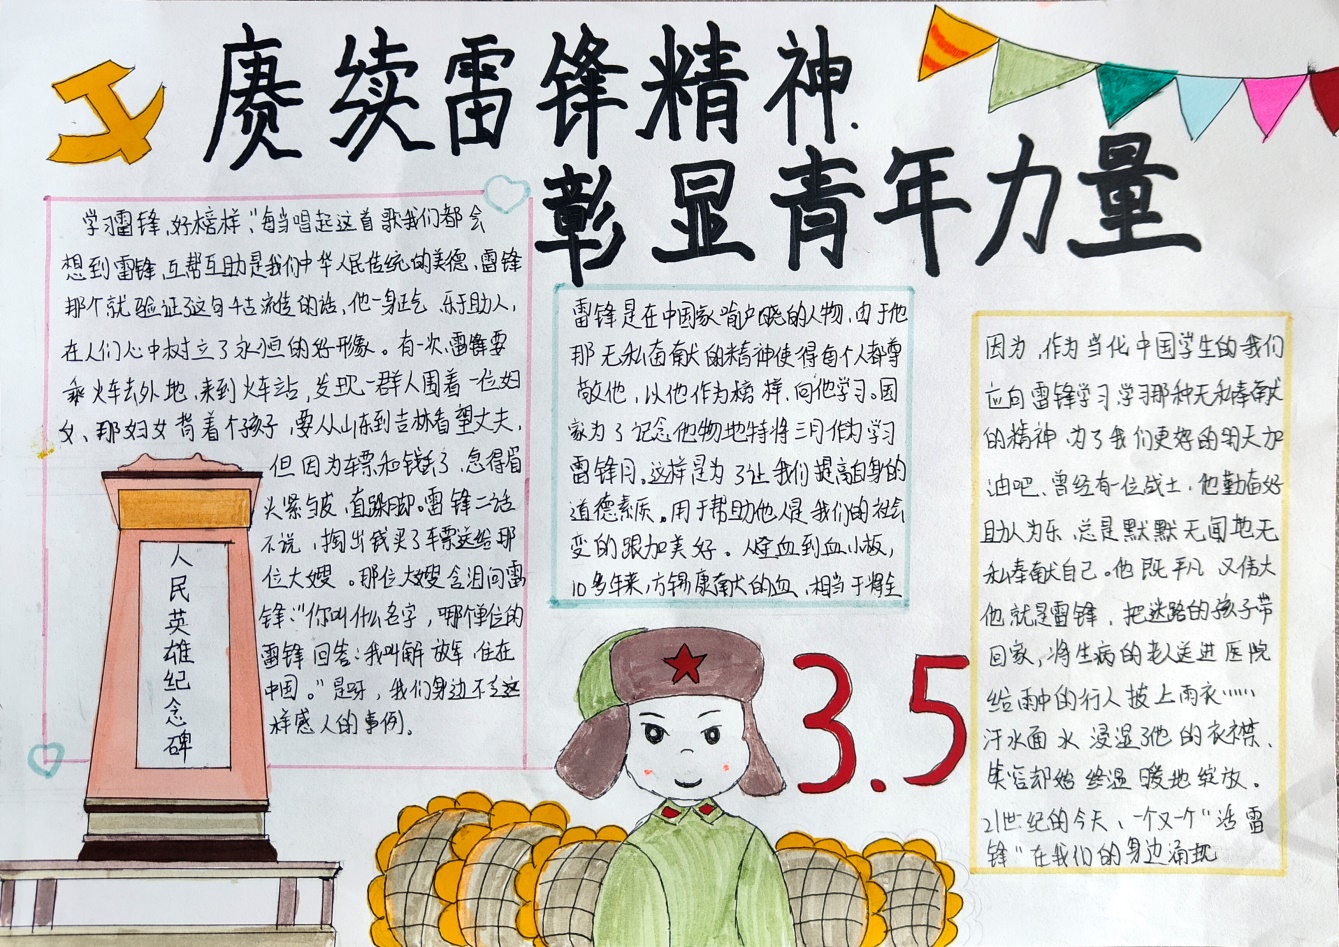 赓续雷锋精神
彰显青年力量
学习雷锋、好榜样，"每当唱起这首歌我们都会
想到雷锋,互帮互助是我们中华人民传统的美德、雷锋
那个就验证了这句千古流传的话,他一身正气 乐于助人,
在人们心中树立了永恒的好形象。有一次,雷锋要
乘火车去外地,来到火车站,发现一群人围着一位妇
女、那妇女背着个孩子,要从山东到吉林看望丈夫,
但因为车票和钱丢了,急得眉
头紧皱,直跺脚。雷锋二话
不说,掏出钱买了车票送给那
位大嫂。那位大嫂含泪问雷
锋:"你叫什么名字,哪个单位的
雷锋回答:我叫解放军,住在
中国。"是呀,我们身边不乏这
样感人的事例。
人民英雄纪念碑
雷锋是在中国家喻户晓的人物,由于他
那无私奋献的精神使得每个人都尊
敬他,以他作为榜样,向他学习。国
家为了记念他物地特将三月作为学习
雷锋月。这样是为了让我们提高自身的
道德素质。用于帮助他人是我们的社会
变的跟加美好。从全血到血小板,
10多年来,方锡康献的血,相当于将全
3.5
因为,作为当代中国学生的我们
应向雷锋学习学习那种无私奉献
的精神,为了我们更好的明天加
油吧、曾经有一位战士,他勤奋好
助人为乐,总是默默无闻地无
私奉献自己。他既平凡 又伟大
他就是雷锋,把迷路的孩子带
回家,将生病的老人送进医院
给雨中的行人披上雨衣……
汗水面水 浸湿了他的衣襟、
笑容却始终温暖地绽放。
21世纪的今天、一个又一个"活雷
锋"在我们的身边涌现